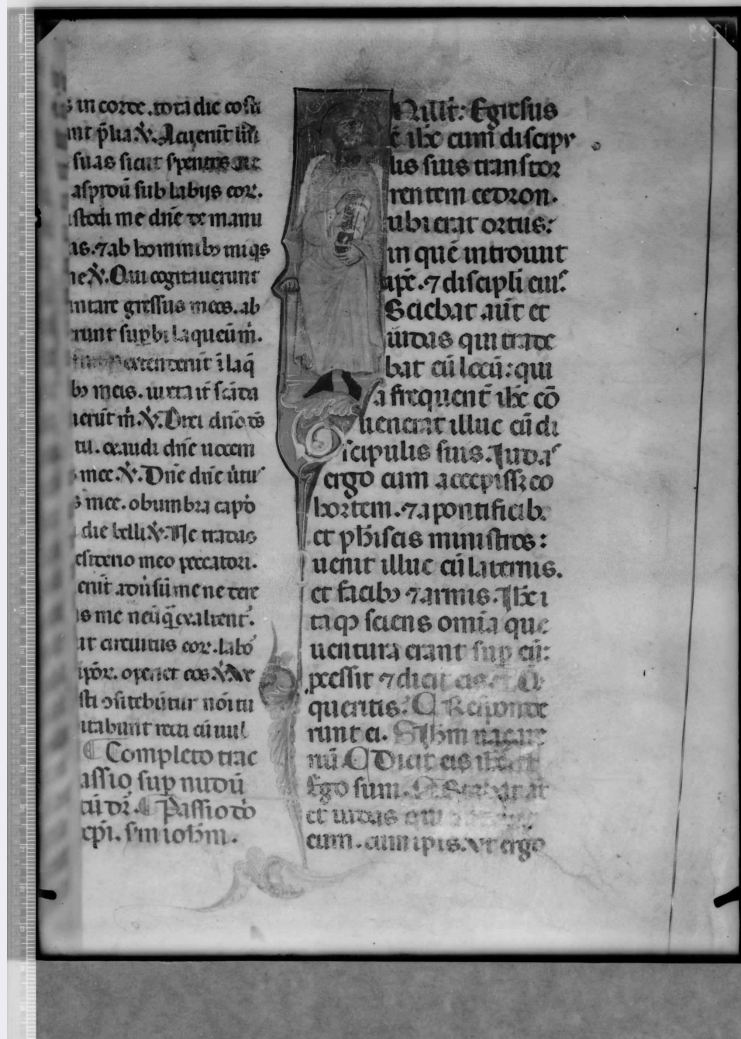 in corde. tota die cōsti
ānt p̄lia. ℣. Acuerūt līn
suas sicut spentis ue
aspidū sub labijs eor̄.
stodi me dn̄e de manu
is. ⁊ ab hominibꝫ iniqis
me ℣. Qui cogitauerunt
antare gressus meos. ab
runt supbi laqueū m̄.
extenderūt ī laq̄
bꝫ meis. iuxta it scāda
uerūt m̄. ℣. Dixi dn̄o ds̄
tu. exaudi dn̄e uocem
mee. ℣. Dn̄e dn̄e ūtus
mee. obumbra cap̄
die belli ℣. Ne tradas
esiderio meo peccatori.
erūt aduīsū me ne dere
as me neq̄ exaltent̄.
ut circuitus eor̄. labō
ipor̄. operiet eos ℣. Ver
sti ɔfitebūtur nōi tu
itabunt recti cū uul
¶ Completo trac
assio sup nudū
cū dr̄. ¶ Passio dō
xp̄i. s̄m ioh̄m.
N ill t̄: Egressus
ē ihc̄ cum discipu
lis suis trans tor
rentem cedron.
ubi erat ortus:
in quē introiuit
ip̄e. ⁊ discipli eiꝰ.
Sciebat aūt et
iudas qui trade
bat eū locū: qui
a frequent̄ ihc̄ cō
uenerat illuc cū di
scipulis suis. Iudas
ergo cum accepissꝫ co
hortem. ⁊ a pontificibꝫ
et phīseis ministros:
uenit illuc cū laternis.
et facibꝫ ⁊ armis. Ihc̄ i
taqꝫ sciens omīa que
uentura erant sup eū:
pcessit ⁊ dicit eis.
queritis. ¶ Responde
runt ei. Ihm̄ nazare
nū. ¶ Dicit eis ihc̄
Ego sum. ¶ Stabat at
et iudas qui
eum. cum ipis. Vt ergo